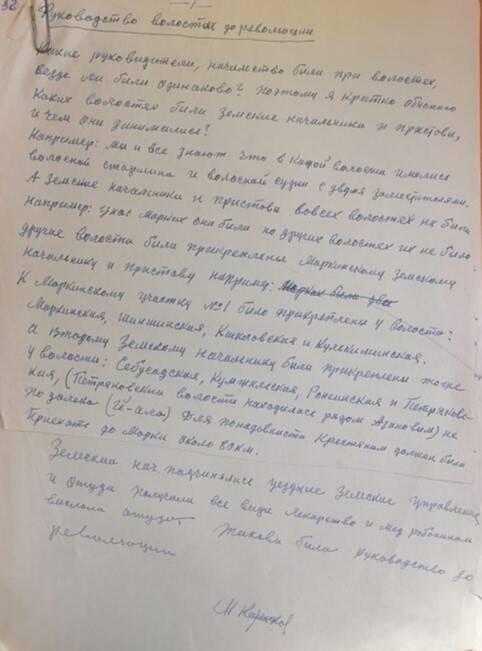 32
-1-
Руководство волостях до революции
Какие руководители, начимство были при волостях,
везде ли были одинаково? Поэтому я кратко обясню
Каких волостях были Земские начальники и приставы,
и чем они занимались?
Например: мы и все знают что в каждой волости имелися
волосной старшина и волосной судьи с двумя заместителями.
А Земские начальники и приставы вовсех волостях не были
Например: у нас Марких они были но других волостях их не было
другие волости были прикреплены Маркинскому Земскому
Начальнику и приставу например:
К Маркинскому участку №1 было прикреплены 4 волости:
Маркинская, Шиншинская, Кшкловская и Кулькиминская.
а второму Земскому Начальнику были прикреплены тоже
4 волости: Себусадская, Кумужьяская, Ронгинская и Петряковс-
кая, (Петряковский волости находилися рядом Азановым) не
по далека (й-ола) Для понадовисти Крестяним должен были
Приехать до Марки около 80км.
Земский нач. подчинялися уездные Земские управления
и Оттуда получали все виды лекарство и мед работником
выслали оттуда.
Такова было руководство до
революции